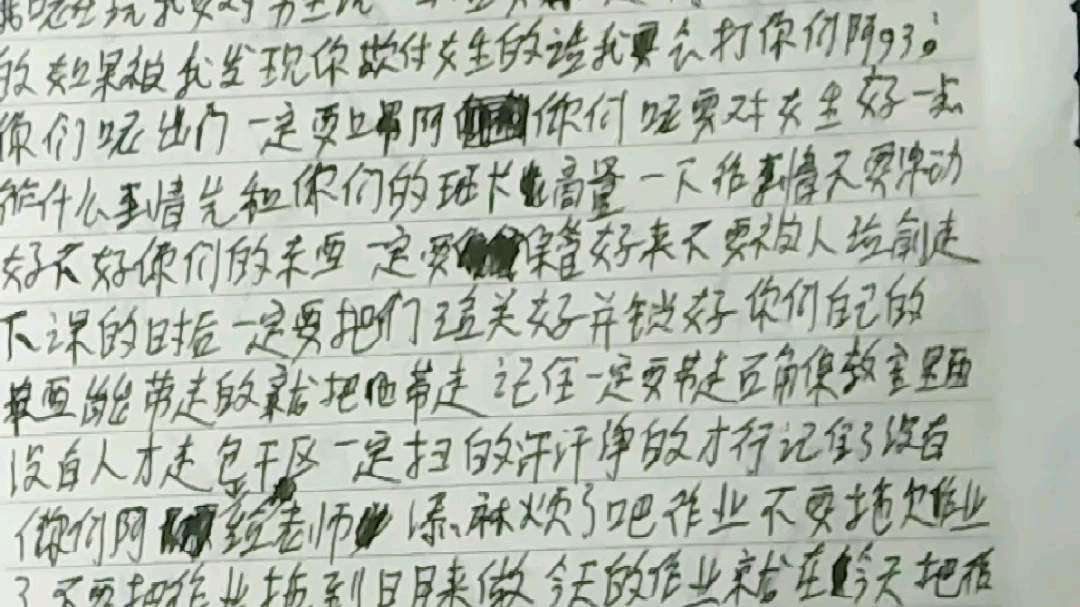 的如果被我发现你欺付女生的话我要会打你们阿93。
你们呢出门一定要 阿 你们呢要对女生好一点
什么事情先和你们的班长商量一下 事情不要冲动
好不好你们的东西一定要保管好来不要被人给偷走
下课的时后一定要把门 关好并锁好你们自己的
东西能带走的就把他带走记住一定要带走 确保教室里面
没有人才走包干区一定扫的汗汗净的才行记住了没有
你们阿 给老师 添麻烦了吧作业不要拖欠作业
了不要把作业拖到日月来做今天的作业就在今天把